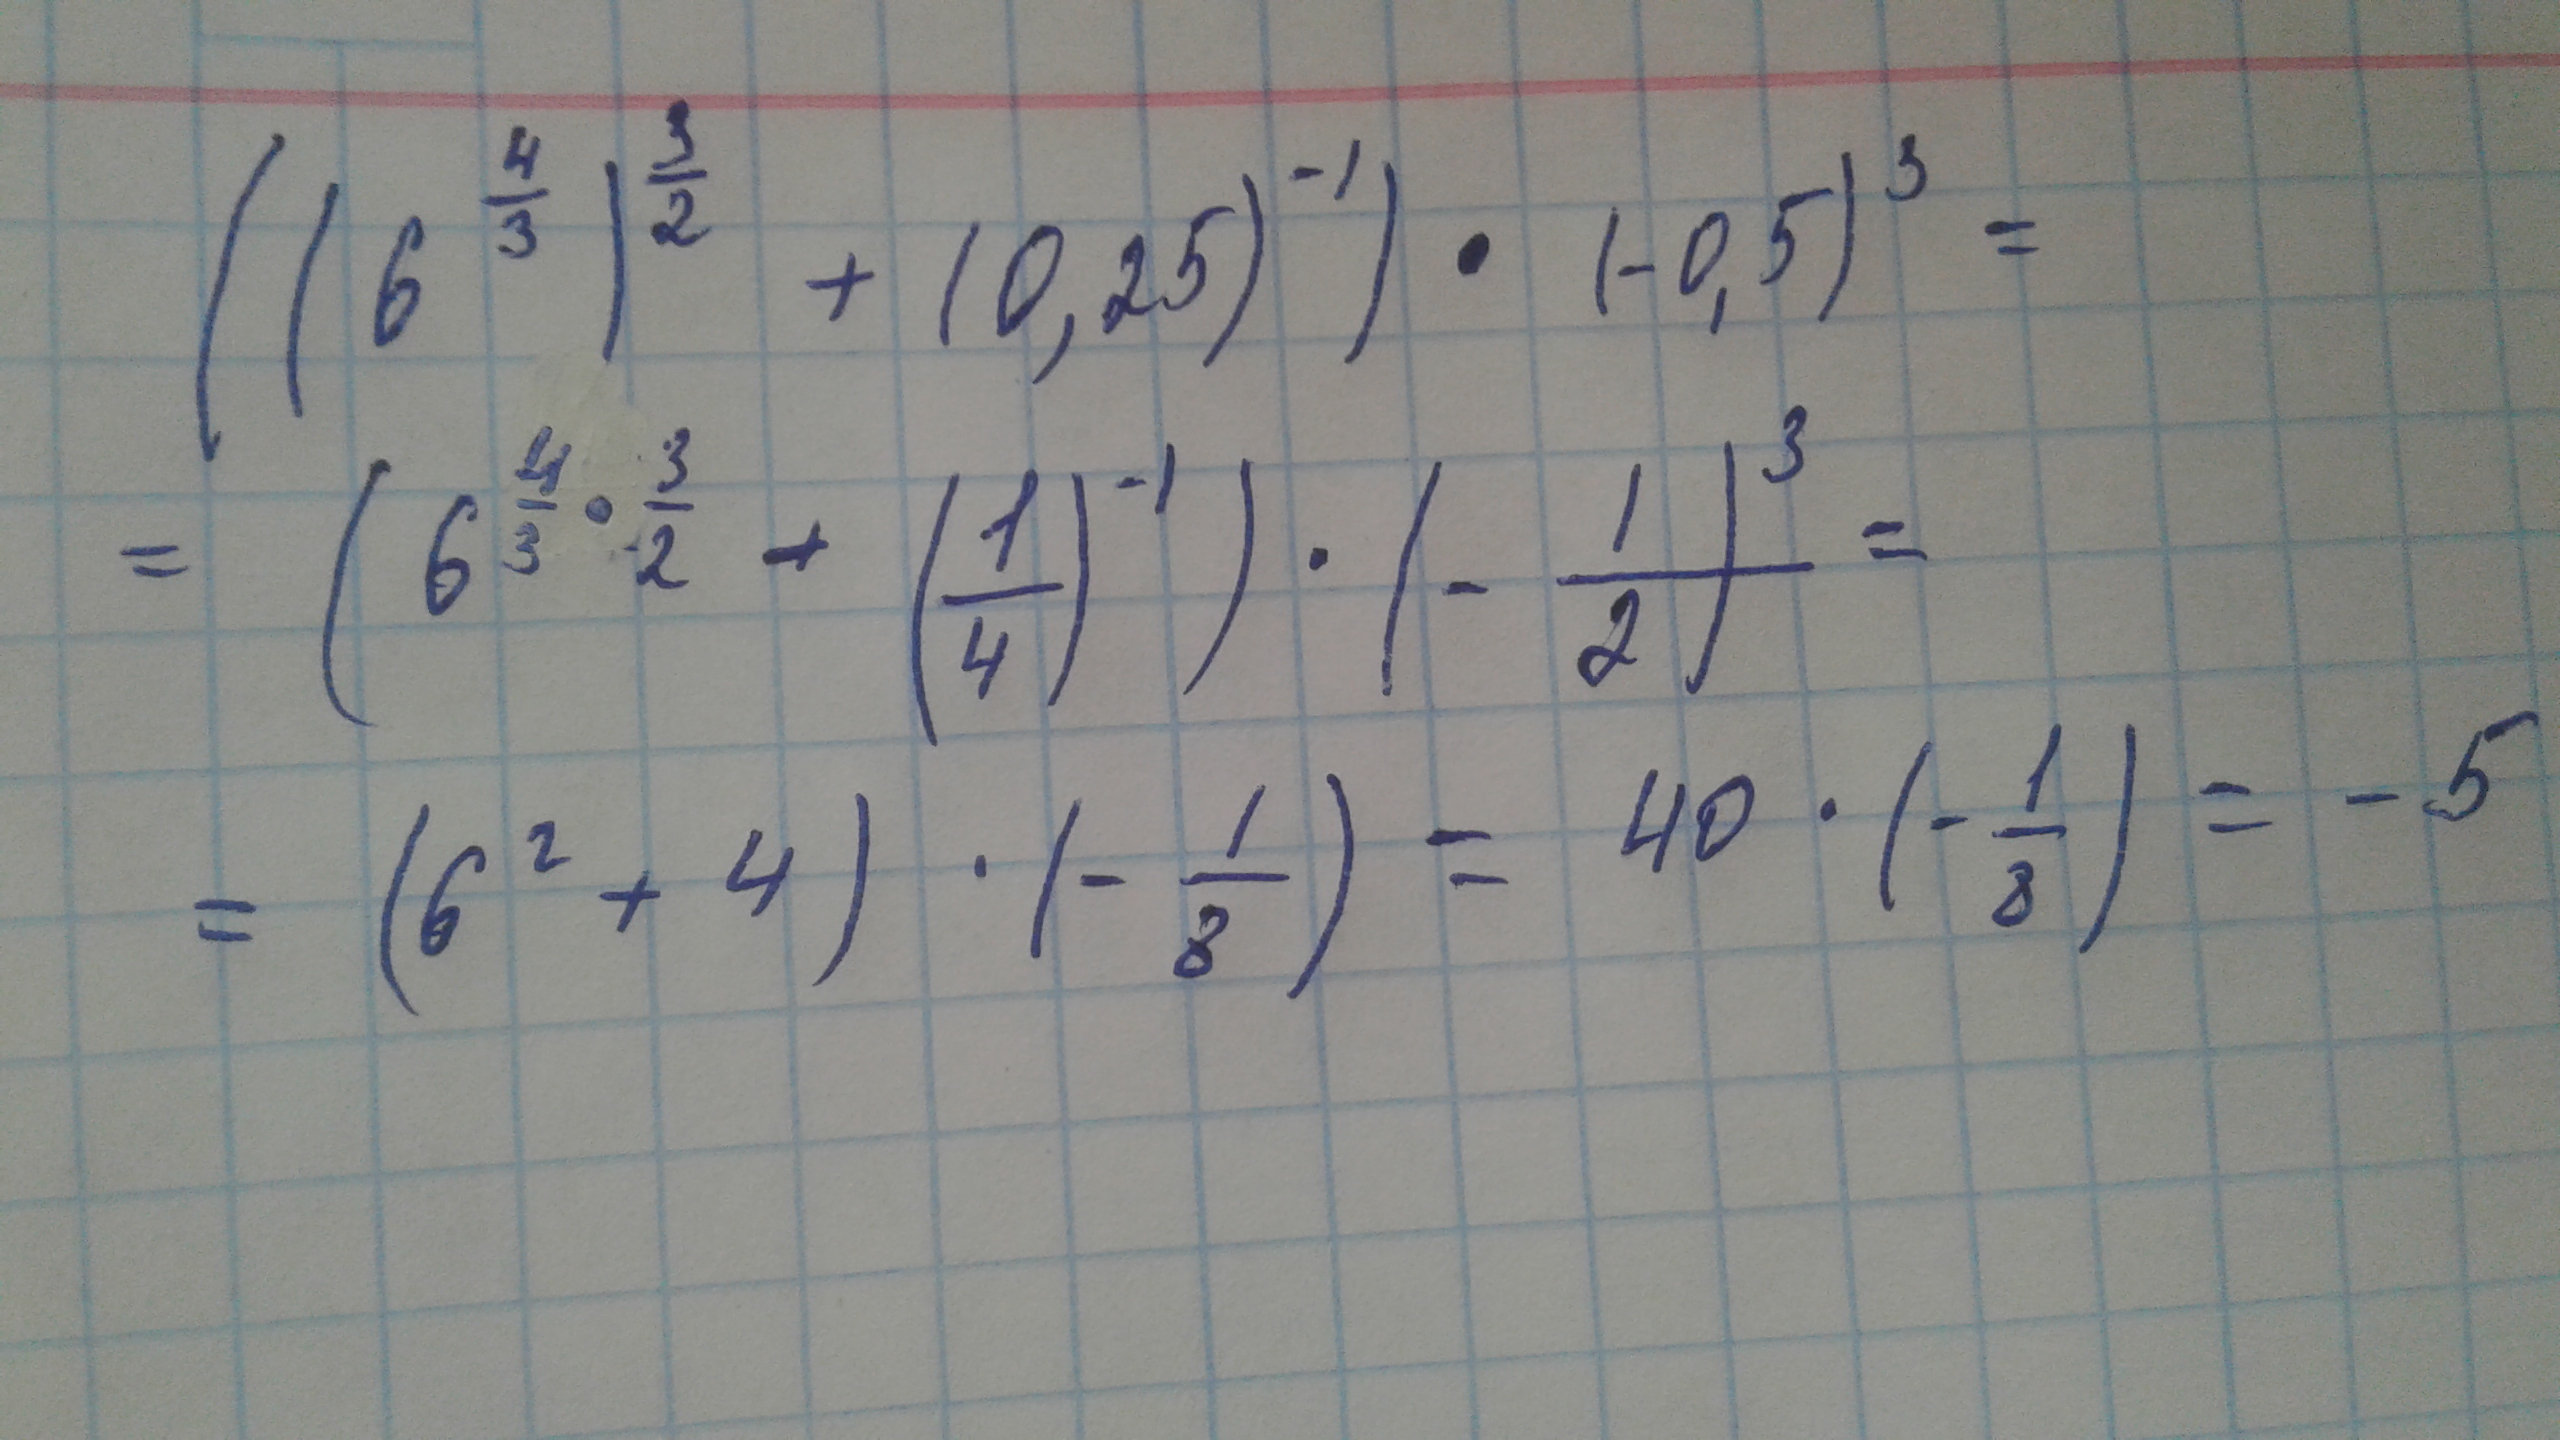 ((6^(4/3))^(3/2) + (0,25)^(-1)) • (-0,5)^3 =
= (6^(4/3 • 3/2) + (1/4)^(-1)) · (- 1/2)^3 =
= (6^2 + 4) · (- 1/8) = 40 · (- 1/8) = - 5